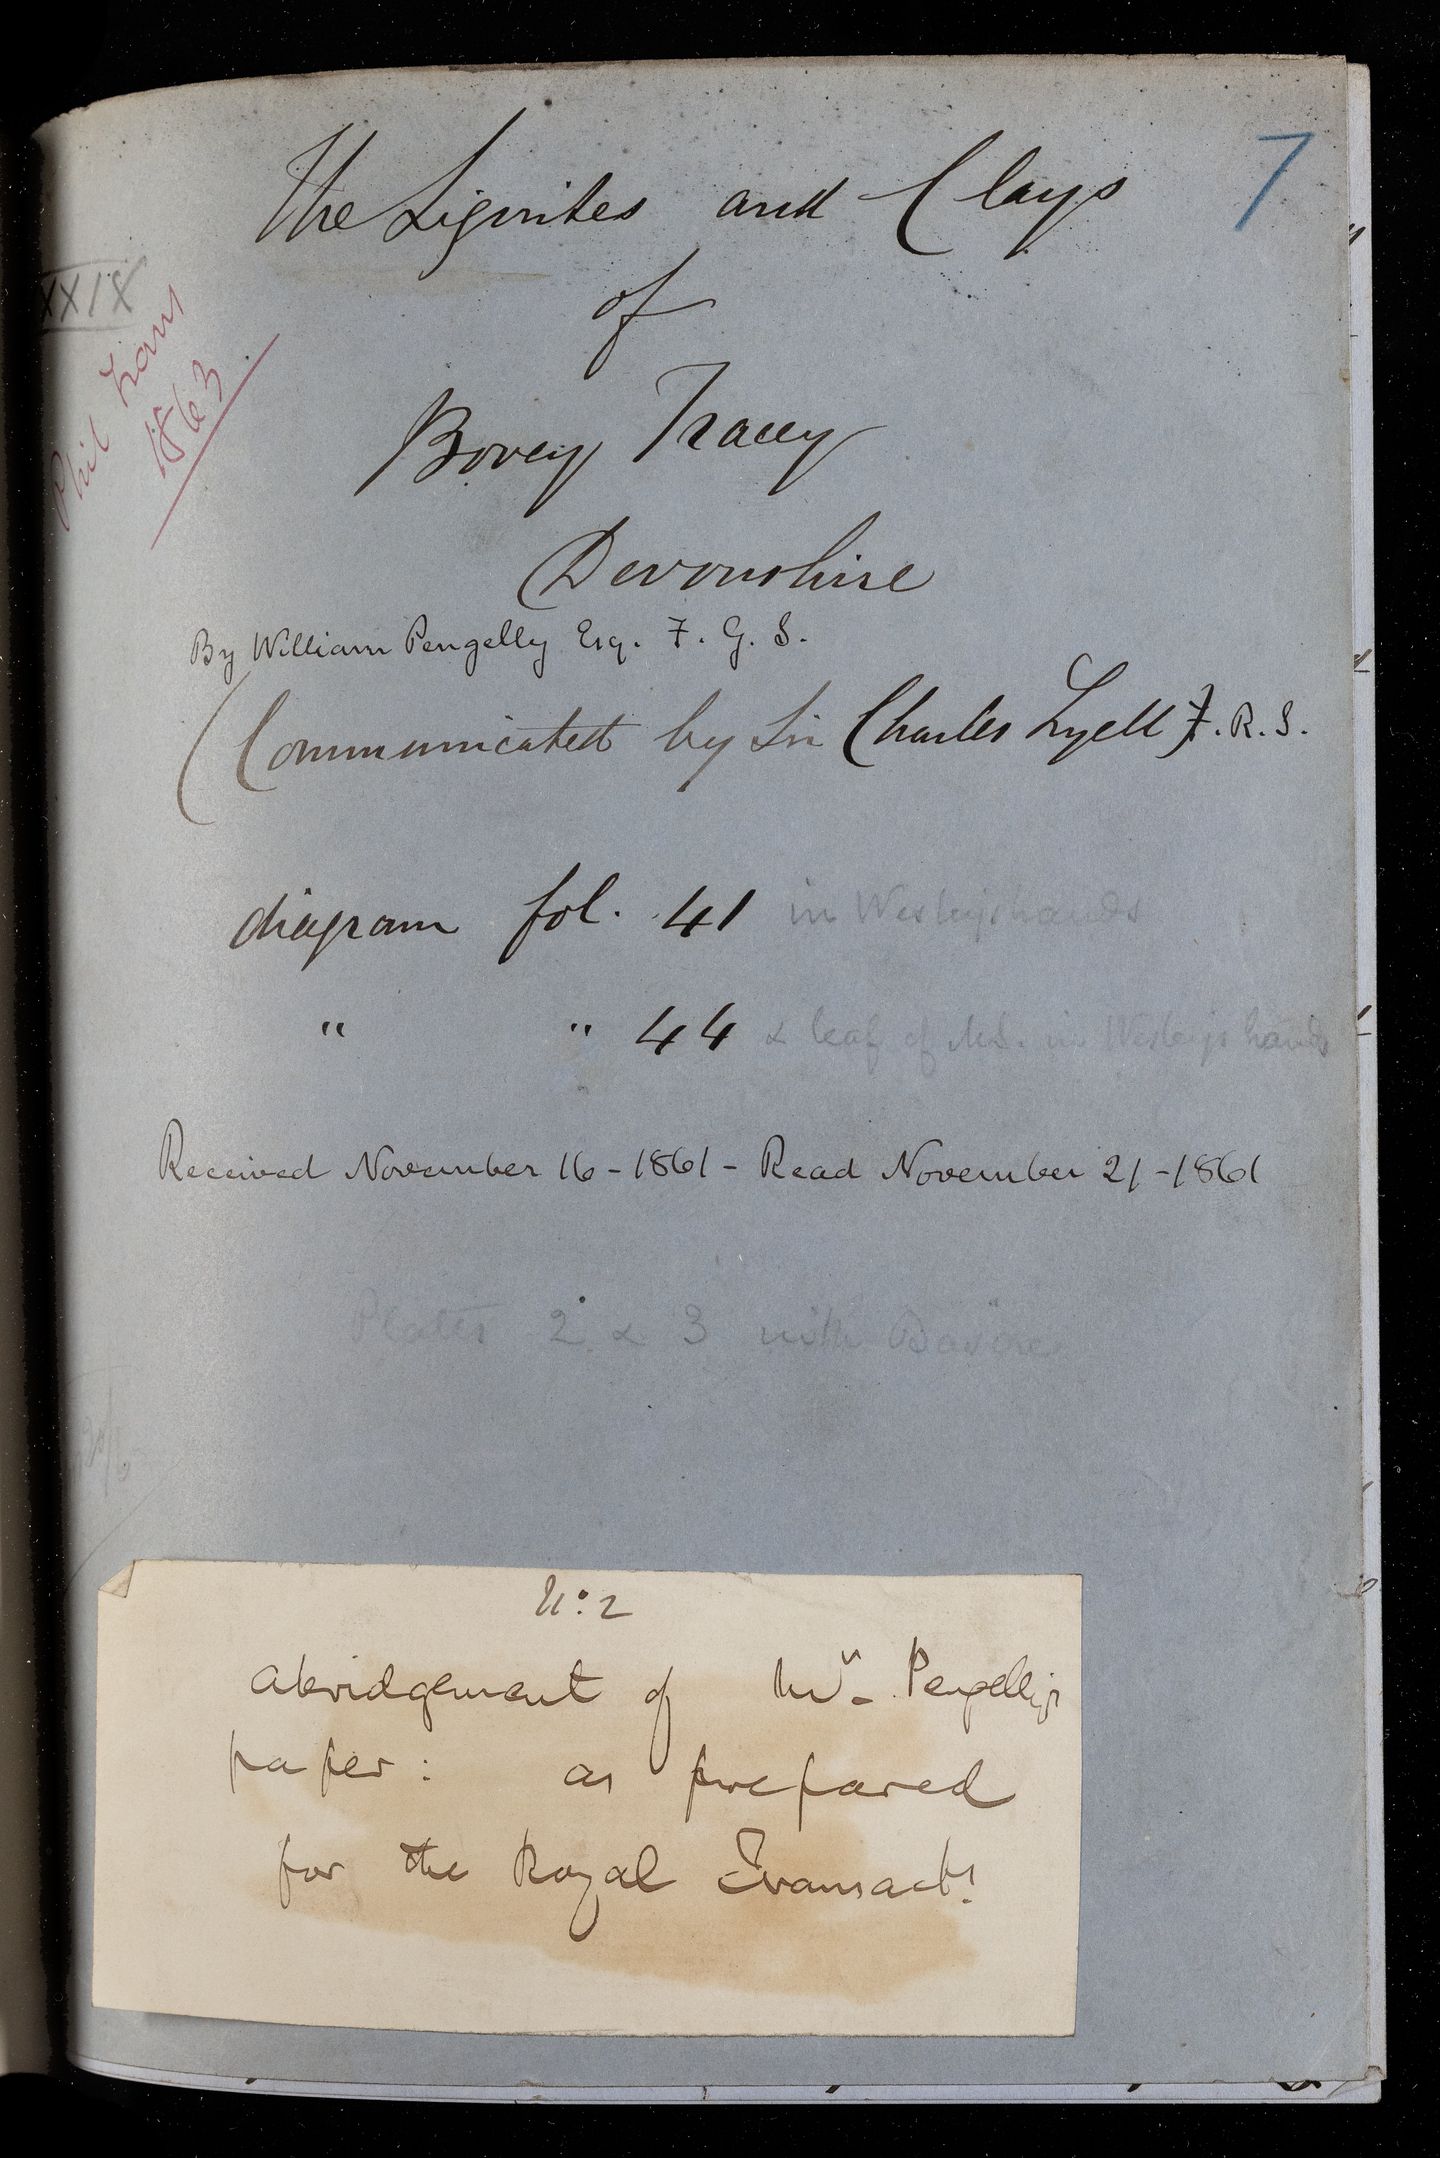 7
The Lignites and Clays
of
Bovey Tracey
Devonshire
XXIX
Phil Trans
1863
By William Pengelly Esq. F. G. S.
(Communicated by Sir Charles Lyell F. R. S.
diagram fol. 41 in Wesley's hands
" " 44 & leaf of MS. in Wesley's hands
Received November 16 - 1861 - Read November 21 - 1861
Plates 2 & 3 with Basire
No. 2
abridgement of Mr. Pengelly's
paper: as prepared
for the Royal Transacts.